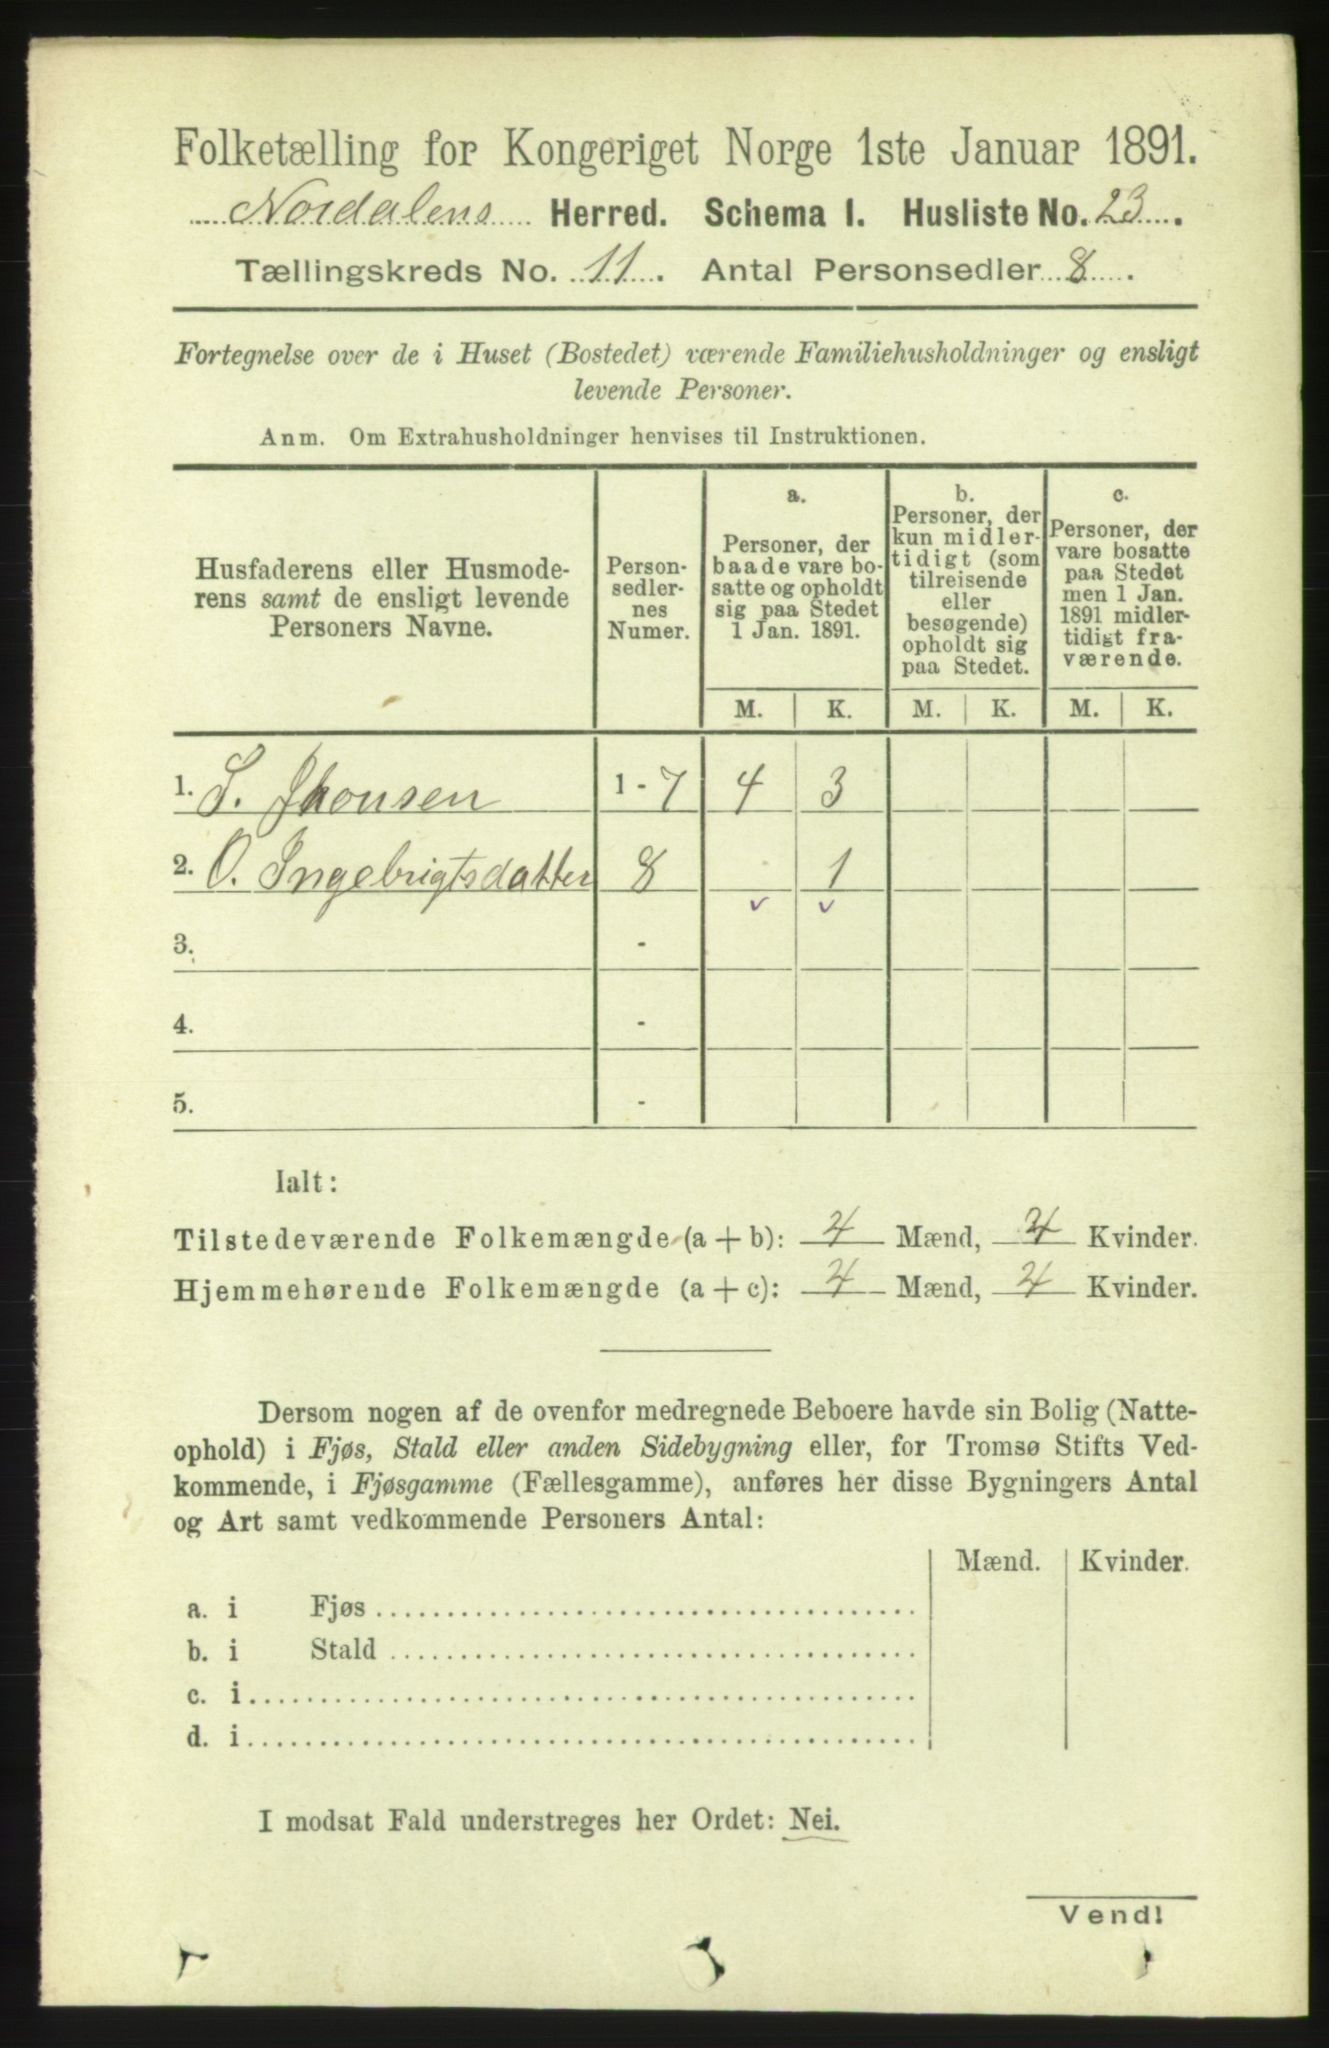 Folketælling for Kongeriget Norge 1ste Januar 1891.
Nordalens Herred. Schema I. Husliste No. 23.
Tællingskreds No. 11. Antal Personsedler 8.
Fortegnelse over de i Huset (Bostedet) værende Familiehusholdninger og ensligt
levende Personer.
Anm. Om Extrahusholdninger henvises til Instruktionen.
Husfaderens eller Husmode-
rens samt de ensligt levende
Personers Navne.
Person-
sedler-
nes
Numer.
a.
Personer, der
baade vare bo-
satte og opholdt
sig paa Stedet
1 Jan. 1891.
b.
Personer, der
kun midler-
tidigt (som
tilreisende
eller
besøgende)
opholdt sig
paa Stedet.
c.
Personer, der
vare bosatte
paa Stedet
men 1 Jan.
1891 midler-
tidigt fra-
værende.
M. K. M. K. M. K.
1. S. Jhonsen 1 - 7 4 3
2. O. Ingebrigtsdatter 8 1
3. -
4. -
5. -
Ialt:
Tilstedeværende Folkemængde (a + b): 4 Mænd, 4 Kvinder.
Hjemmehørende Folkemængde (a + c): 4 Mænd, 4 Kvinder.
Dersom nogen af de ovenfor medregnede Beboere havde sin Bolig (Natte-
ophold) i Fjøs, Stald eller anden Sidebygning eller, for Tromsø Stifts Ved-
kommende, i Fjøsgamme (Fællesgamme), anføres her disse Bygningers Antal
og Art samt vedkommende Personers Antal:
Mænd. Kvinder.
a. i Fjøs
b. i Stald
c. i
d. i
I modsat Fald understreges her Ordet: Nei.
Vend!